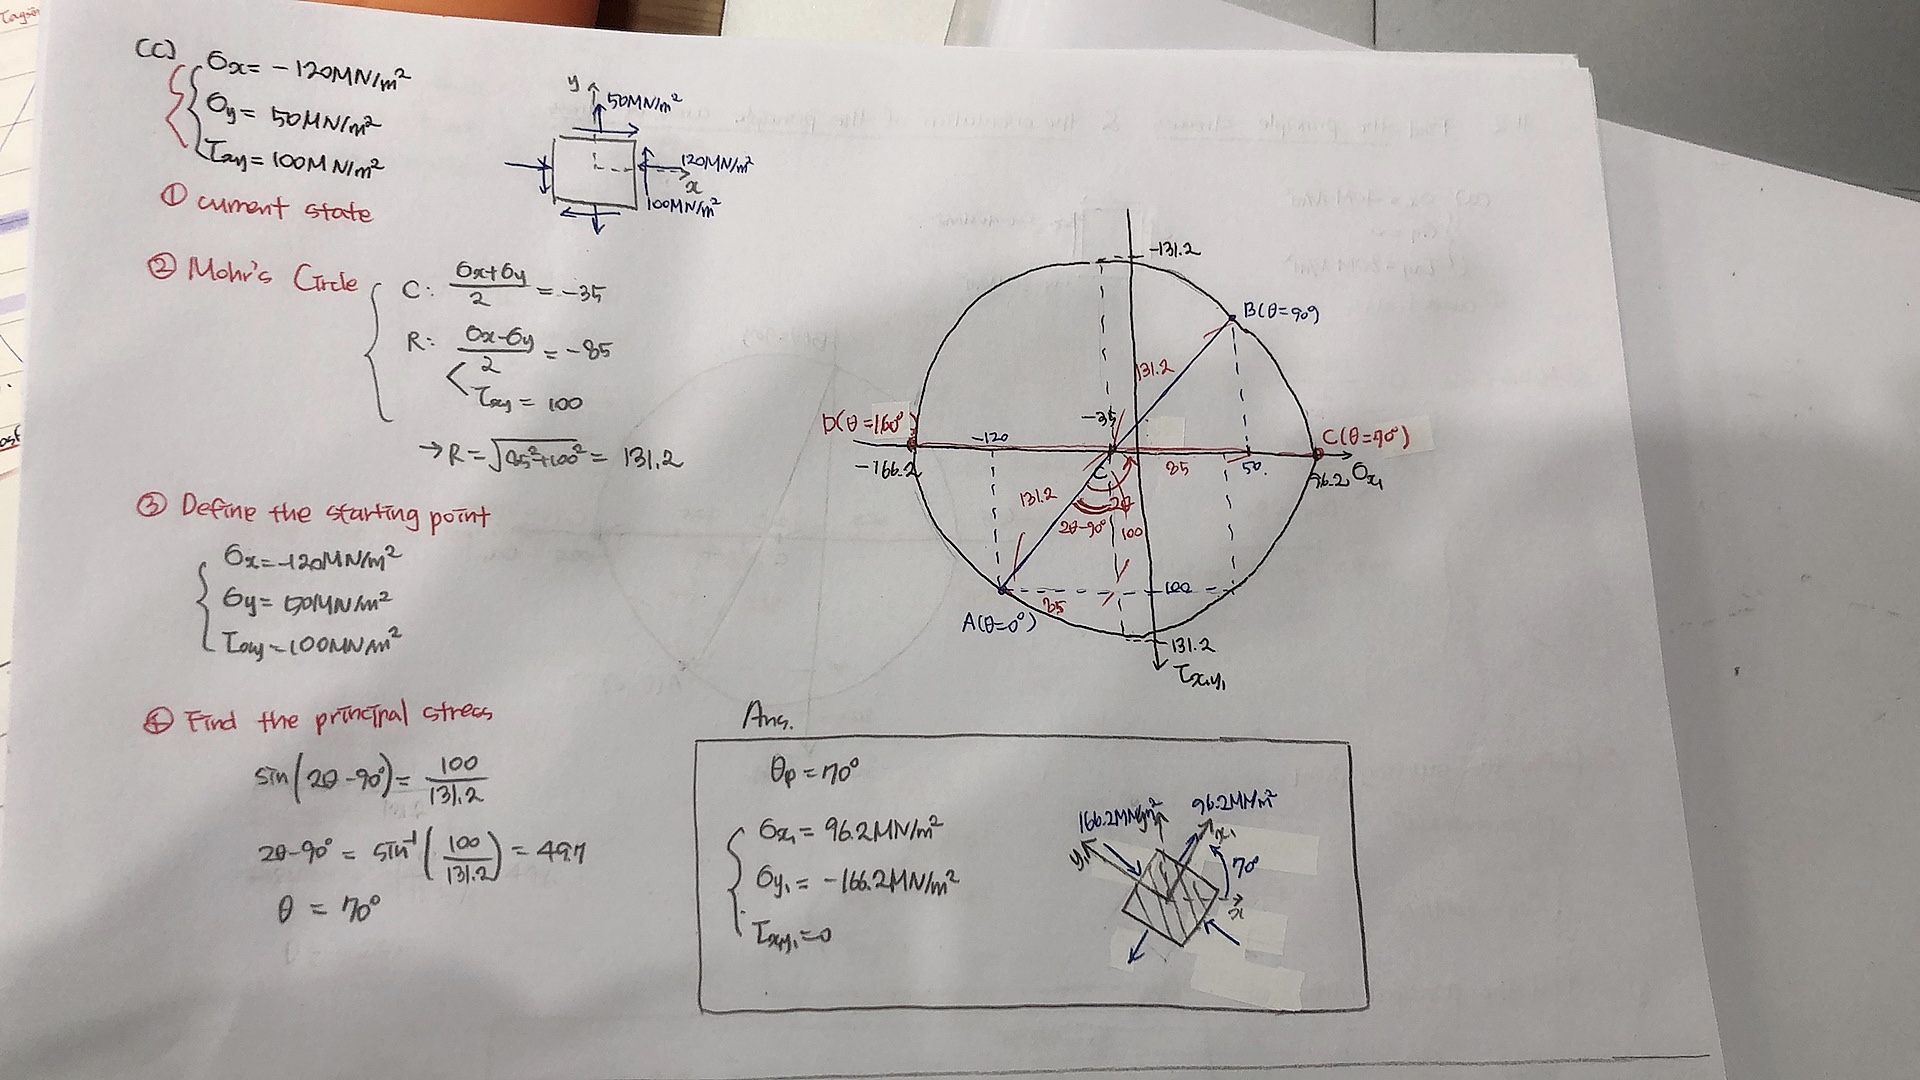 (C)
σx = -120MN/m²
σy = 50MN/m²
τxy = 100MN/m²
① current state
y
50MN/m²
120MN/m²
x
100MN/m²
② Mohr's Circle
C: σx+σy / 2 = -35
R: σx-σy / 2 = -85
τxy = 100
→ R = √85²+100² = 131.2
③ Define the starting point
σx = -120MN/m²
σy = 50MN/m²
τxy = 100MN/m²
④ Find the principal stress
sin(2θ-90°) = 100 / 131.2
2θ-90° = sin⁻¹(100 / 131.2) = 49.7
θ = 70°
-131.2
B(θ=90°)
131.2
-35
D(θ=160°)
-120
C(θ=70°)
-166.2
C
85
50
96.2
σx₁
131.2
2θ
2θ-90°
100
85
100
A(θ=0°)
131.2
τx₁y₁
Ans.
θp = 70°
σx₁ = 96.2MN/m²
σy₁ = -166.2MN/m²
τx₁y₁ = 0
166.2MN/m²
y
96.2MN/m²
x₁
y₁
70°
x